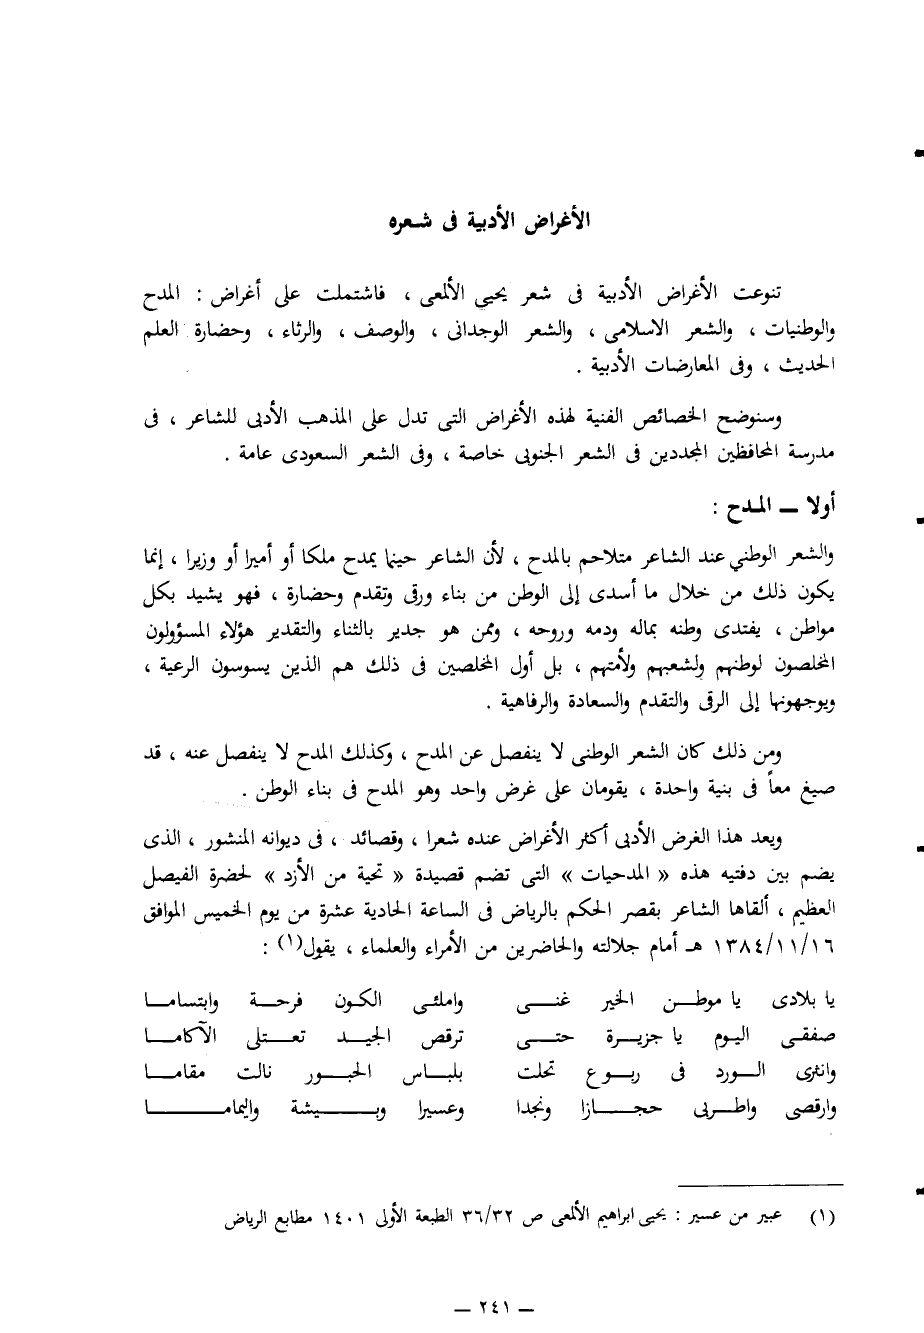 الأغراض الأدبية فى شعره
تنوعت الأغراض الأدبية فى شعر يحيى الألمعى ، فاشتملت على أغراض : المدح
والوطنيات ، والشعر الاسلامى ، والشعر الوجدانى ، والوصف ، والرثاء ، وحضارة العلم
الحديث ، وفى المعارضات الأدبية .
وسنوضح الخصائص الفنية لهذه الأغراض التى تدل على المذهب الأدبى للشاعر ، فى
مدرسة المحافظين المجددين فى الشعر الجنوبى خاصة ، وفى الشعر السعودى عامة .
أولا – المدح :
والشعر الوطني عند الشاعر متلاحم بالمدح ، لأن الشاعر حينما يمدح ملكا أو أميرا أو وزيرا ، إنما
يكون ذلك من خلال ما أسدى إلى الوطن من بناء ورقى وتقدم وحضارة ، فهو يشيد بكل
مواطن ، يفتدى وطنه بماله ودمه وروحه ، وممن هو جدير بالثناء والتقدير هؤلاء المسؤولون
المخلصون لوطنهم ولشعبهم ولأمتهم ، بل أول المخلصين فى ذلك هم الذين يسوسون الرعية ،
ويوجهونها إلى الرقى والتقدم والسعادة والرفاهية .
ومن ذلك كان الشعر الوطنى لا ينفصل عن المدح ، وكذلك المدح لا ينفصل عنه ، قد
صيغ معاً فى بنية واحدة ، يقومان على غرض واحد وهو المدح فى بناء الوطن .
ويعد هذا الغرض الأدبى أكثر الأغراض عنده شعرا ، وقصائد ، فى ديوانه المنشور ، الذى
يضم بين دفتيه هذه « المدحيات » التى تضم قصيدة « تحية من الأزد » لحضرة الفيصل
العظيم ، ألقاها الشاعر بقصر الحكم بالرياض فى الساعة الحادية عشرة من يوم الخميس الموافق
١٣٨٤/١١/١٦ هـ أمام جلالته والحاضرين من الأمراء والعلماء ، يقول(١) :
يا بلادى يا موطن الخير غنى واملئى الكون فرحة وابتساما
صفقى اليوم يا جزيرة حتى ترقص الجيد تعتلى الآكاما
وانثرى الورد فى ربوع تحلت بلباس الحبور نالت مقاما
وارقصى واطربى حجازا ونجدا وعسيرا وبيشة واليماما
(١) عبير من عسير : يحيى ابراهيم الألمعى ص ٣٦/٣٢ الطبعة الأولى ١٤٠١ مطابع الرياض
– ٢٤١ –